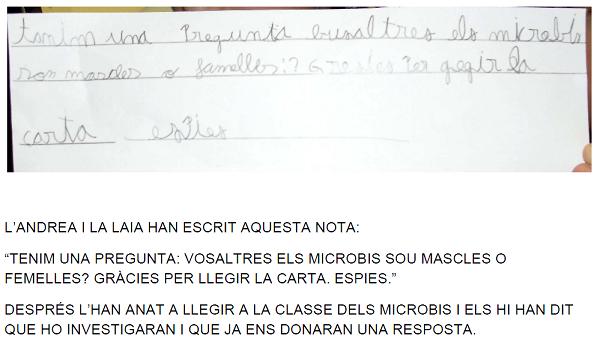 tenim una Pregunta busaltres els microbis
son mascles o famelles:? Gresies Per llegir la
carta espies
L'ANDREA I LA LAIA HAN ESCRIT AQUESTA NOTA:
"TENIM UNA PREGUNTA: VOSALTRES ELS MICROBIS SOU MASCLES O
FEMELLES? GRÀCIES PER LLEGIR LA CARTA. ESPIES."
DESPRÉS L'HAN ANAT A LLEGIR A LA CLASSE DELS MICROBIS I ELS HI HAN DIT
QUE HO INVESTIGARAN I QUE JA ENS DONARAN UNA RESPOSTA.